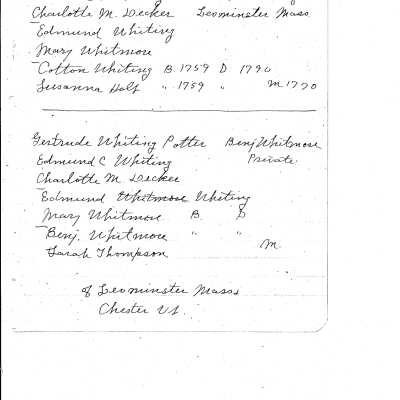 Charlotte M. Decker Leominster Mass
Edmund Whiting
Mary Whitmore
Cotton Whiting B 1759 D 1790
Susanna Holt " 1759 " M 1770
Gertrude Whiting Potter Benj Whitmore
Edmund C Whiting Private
Charlotte M Decker
Edmund Whitmore Whiting
Mary Whitmore B D
Benj. Whitmore " "
Sarah Thompson M
of Leominster Mass
Chester Vt.